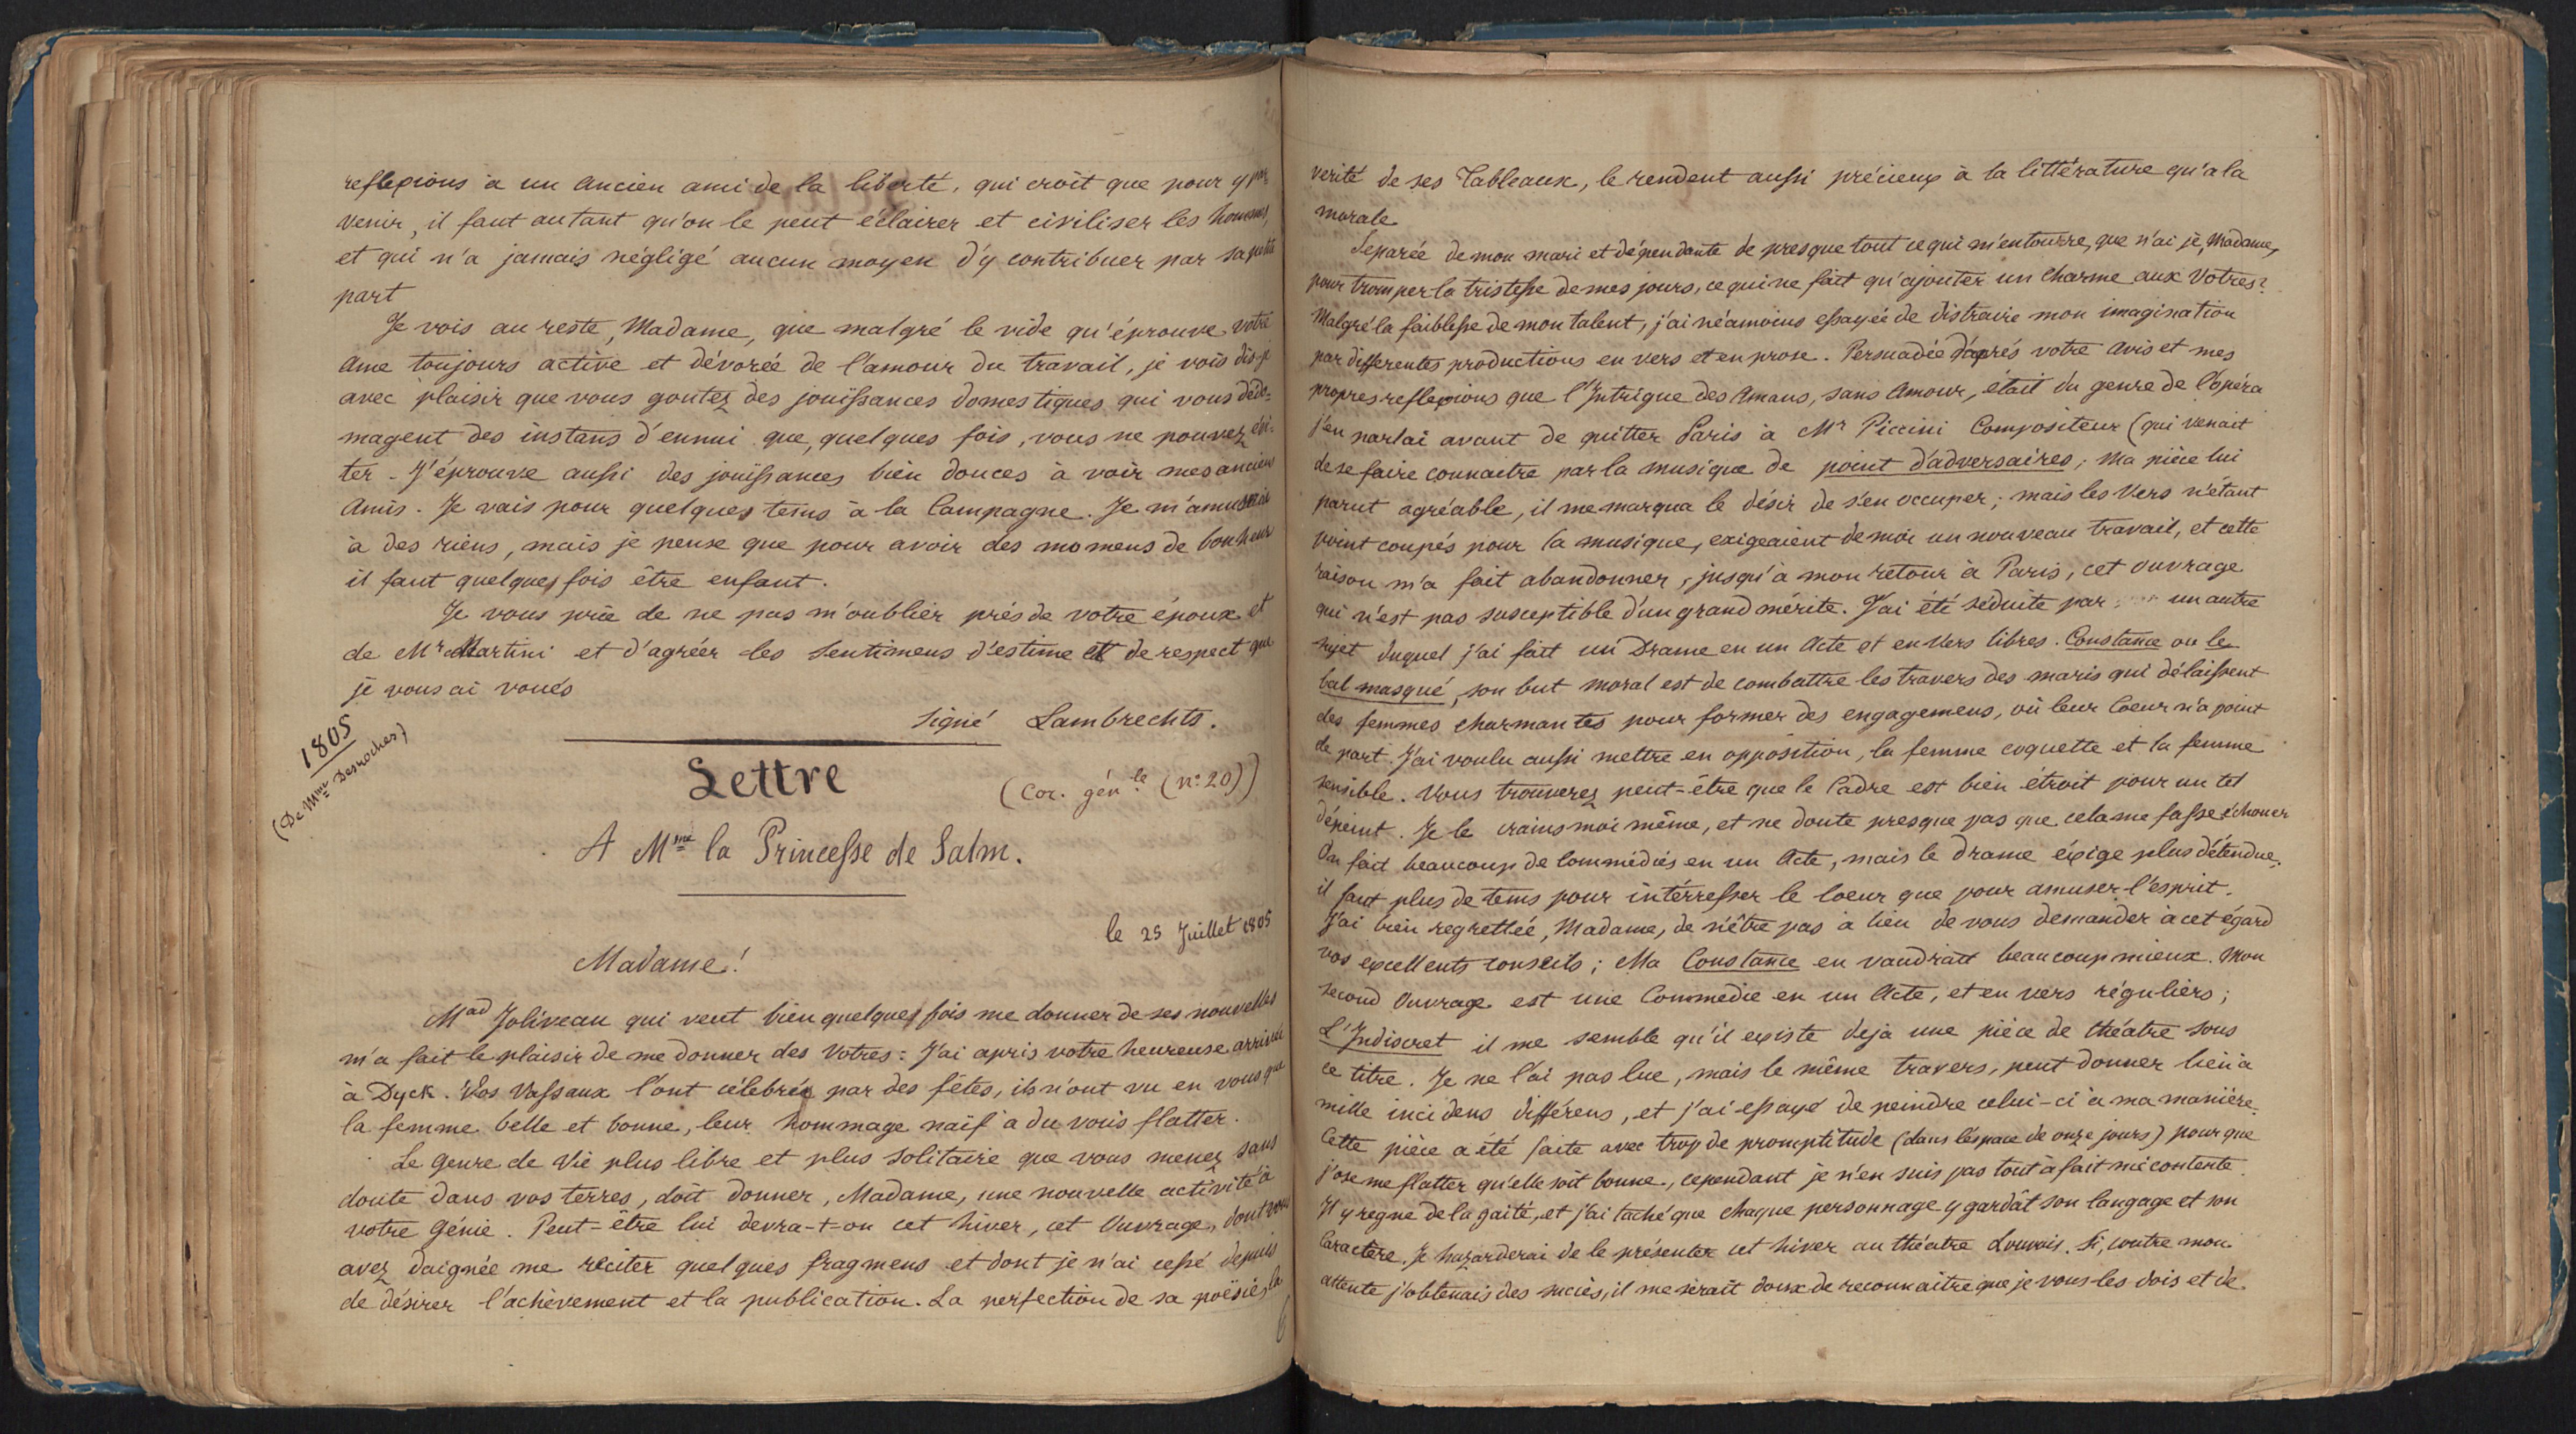 reflexions à un ancien ami de la liberté, qui croit que pour y par=
venir, il faut autant qu'on le peut éclairer et civiliser les hommes,
et qui n'a jamais négligé aucun moyen d'y contribuer par sa petite
part
Je vois au reste, Madame, que malgré le vide qu'éprouve votre
ame toujours active et dévorée de l'amour du travail, je vois dis-je
avec plaisir que vous goutez des jouissances domestiques qui vous dédo=
magent des instans d'ennui que, quelques fois, vous ne pouvez évi=
ter. J'éprouve aussi des jouissances bien douces à voir mes anciens
Amis. Je vais pour quelques tems à la Campagne. Je m'amuserai
à des riens, mais je pense que pour avoir des momens de bonheur
il faut quelques fois être enfant.
Je vous prie de ne pas m'oublier près de votre époux et
de Mr Martini et d'agréer les sentimens d'estime et de respect que
je vous ai voués
signé Lambrechts.
1805
(De Mme Desroches)
Lettre
(Cor. génle (n°20))
A Mme la Princesse de Salm.
le 25 Juillet 1805
Madame!
Mad Joliveau qui veut bien quelques fois me donner de ses nouvelles
m'a fait le plaisir de me donner des Votres: J'ai apris votre heureuse arrivée
à Dyck. Vos Vassaux l'ont célebrée par des fêtes, ils n'ont vu en vous que
la femme belle et bonne, leur hommage naïf a du vous flatter.
Le genre de Vie plus libre et plus solitaire que vous menez sans
doute dans vos terres, doit donner, Madame, une nouvelle activité à
votre Génie. Peut-être lui devra-t-on cet hiver, cet Ouvrage, dont vous
avez daignée me réciter quelques fragmens et dont je n'ai cessé depuis
de désirer l'achèvement et la publication. La perfection de sa poësie, la
verité de ses Tableaux, le rendent aussi précieux à la littérature qu'a la
morale
Separée de mon mari et dépendante de presque tout ce qui m'entourre, que n'ai je, Madame,
pour tromper la tristesse de mes jours, ce qui ne fait qu'ajouter un charme aux Votres?
Malgré la faiblesse de mon talent, j'ai néamoins essayée de distraire mon imagination
par differentes productions en vers et en prose. Persuadée d'après votre avis et mes
propres reflexions que l'Intrigue des Amans, sans Amour, était du genre de l'opéra
j'en parlai avant de quitter Paris à Mr Piccini Compositeur (qui venait
de se faire connaitre par la musique de point d'adversaires; Ma pièce lui
parut agréable, il me marqua le désir de s'en occuper; mais les Vers n'étant
point coupés pour la musique, exigeaient de moi un nouveau travail, et cette
raison m'a fait abandonner, jusqu'à mon retour à Paris, cet ouvrage
qui n'est pas susceptible d'un grand mérite. J'ai été séduite par un autre
sujet duquel j'ai fait un Drame en un Acte et en Vers libres. Constance ou le
bal masqué, son but moral est de combattre les travers des maris qui délaissent
des femmes charmantes pour former des engagemens, où leur Coeur n'a point
de part. J'ai voulu aussi mettre en opposition, la femme coquette et la femme
sensible. Vous trouverez peut-être que le Cadre est bien étroit pour un tel
dépeint. Je le crains moi même, et ne doute presque pas que cela me fasse échouer
On fait beaucoup de Commédies en un Acte, mais le drame éxige plus d'étendue.
il faut plus de tems pour intérresser le Coeur que pour amuser l'esprit.
J'ai bien regrettée, Madame, de n'être pas à lieu de vous demander à cet égard
vos excellents conseils; Ma Constance en vaudrait beaucoup mieux. Mon
second Ouvrage est une Commédie en un Acte, et en vers réguliers;
L'Indiscret il me semble qu'il existe deja une pièce de théatre sous
ce titre. Je ne l'ai pas lue, mais le même travers, peut donner lieu à
mille incidens différens, et j'ai essayé de peindre celui-ci à ma manière.
Cette pièce a été faite avec trop de promptitude (dans l'éspace de onze jours) pour que
j'ose me flatter qu'elle soit bonne, cependant je n'en suis pas tout à fait mécontente.
Il y regne de la gaité, et j'ai taché que chaque personnage y gardât son langage et son
Caractère. Je hazarderai de le présenter cet hiver au théatre Louvois. Si, contre mon
attente j'obtenais des succès, il me serait doux de reconnaitre que je vous les dois et de